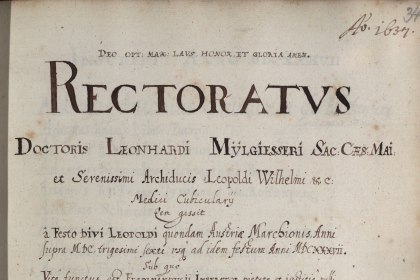 34
Aō. 1637.
DEO OPT: MAX: LAVS HONOR ET GLORIA AMEN.
RECTORATVS
DOCTORIS LEONHARDI MŸLGIESSERI SAC: CÆS: MAI:
et Serenissimi Archiducis Leopoldi Wilhelmi &c:
Medici Cubicularÿ
gessit
à Festo Divi LEOPOLDI quondam Austriæ Marchionis Anni
supra MDC. trigesimi sexti usq ad idem festum Anni MDCXXXVII.
Sub quo
Vice functus est